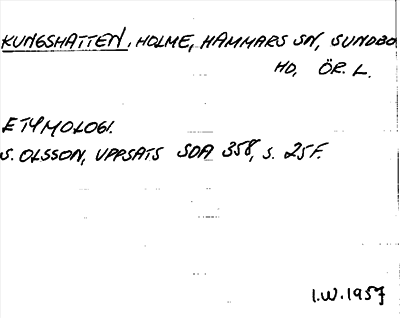 KUNGSHATTEN, HOLME, HAMMARS SN, SUNDBO
HD, ÖR. L.
ETYMOLOGI.
S. OLSSON, UPPSATS SOA 358, S. 25F.
I.W. 1957